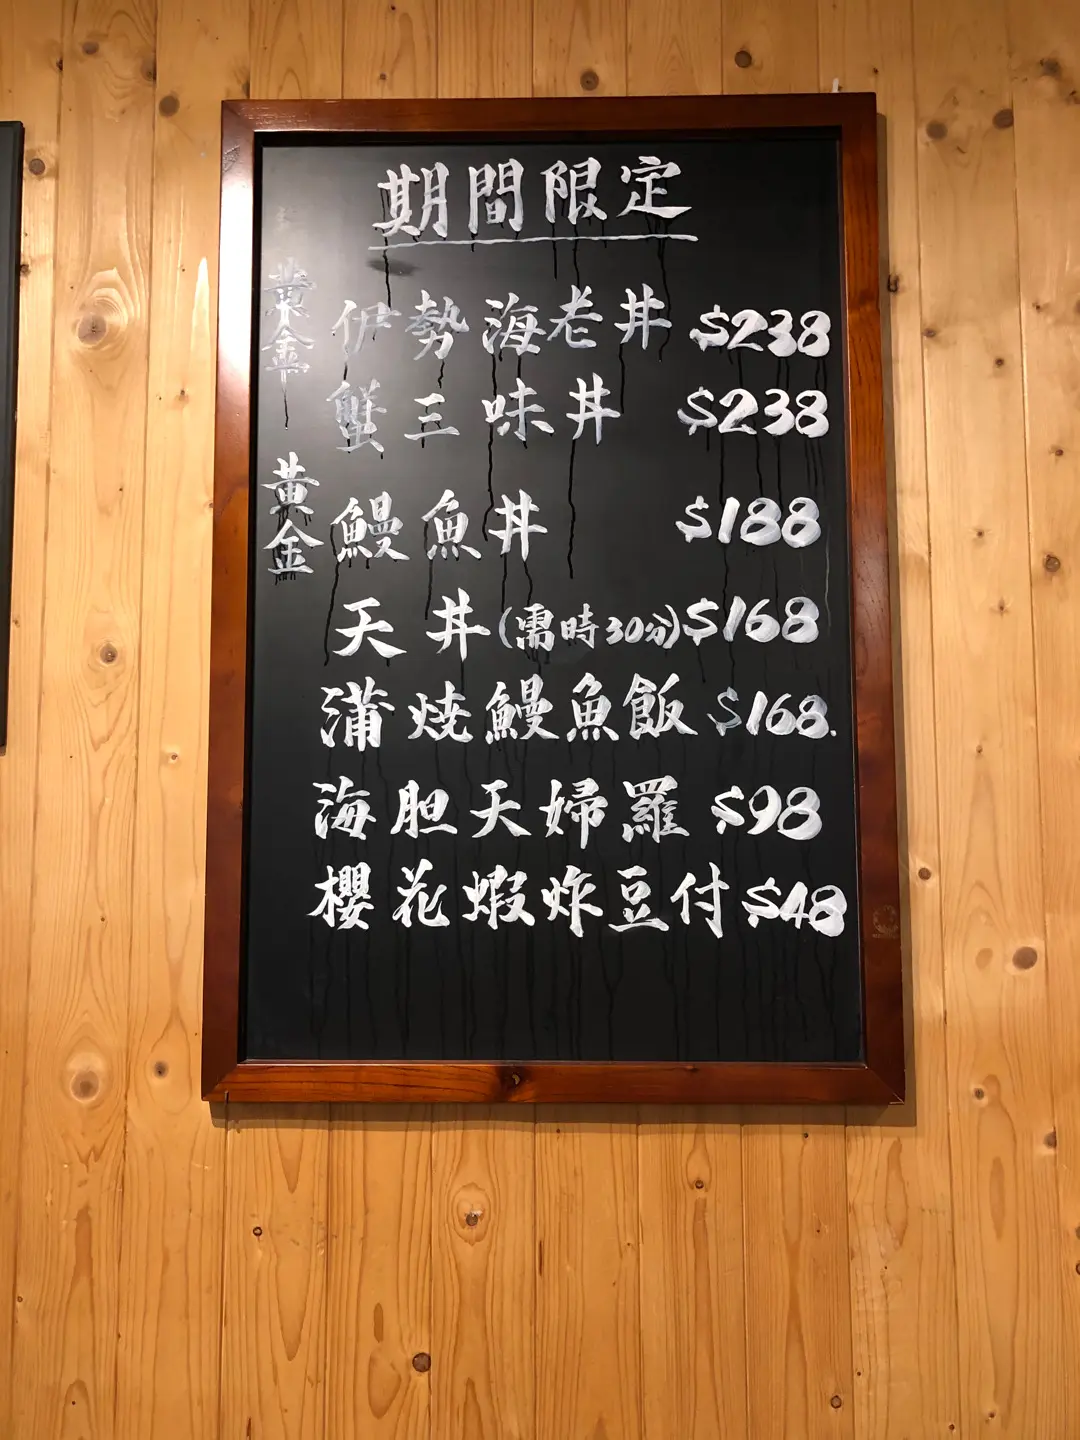 期間限定
黃金 伊勢海老丼 $238
蟹三味丼 $238
黃金 鰻魚丼 $188
天丼(需時30分) $168
蒲燒鰻魚飯 $168.
海胆天婦羅 $98
櫻花蝦炸豆付 $48